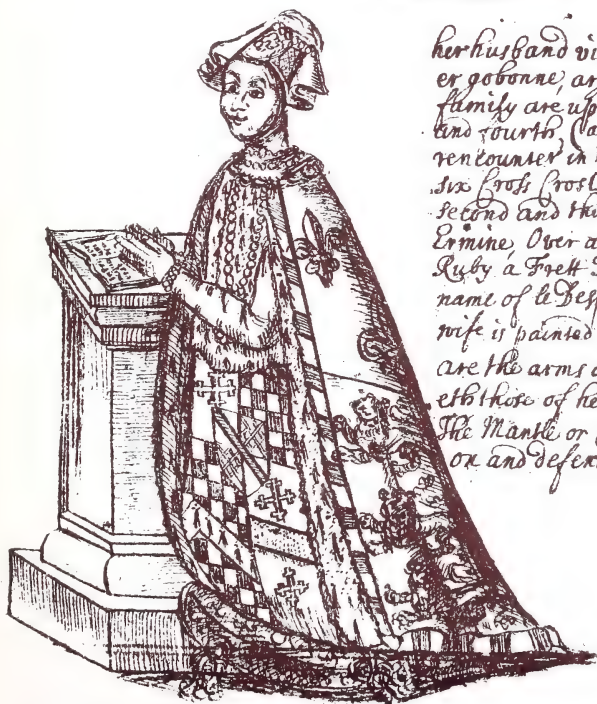 her husband vi
er gobonne, ar
family are up
and fourth, (a
rencounter in
six Cross Crosl
second and thi
Ermine, Over a
Ruby a Frett
name of le Desp
wife is painted
are the arms o
eth those of he
The Mantle or
on and defen